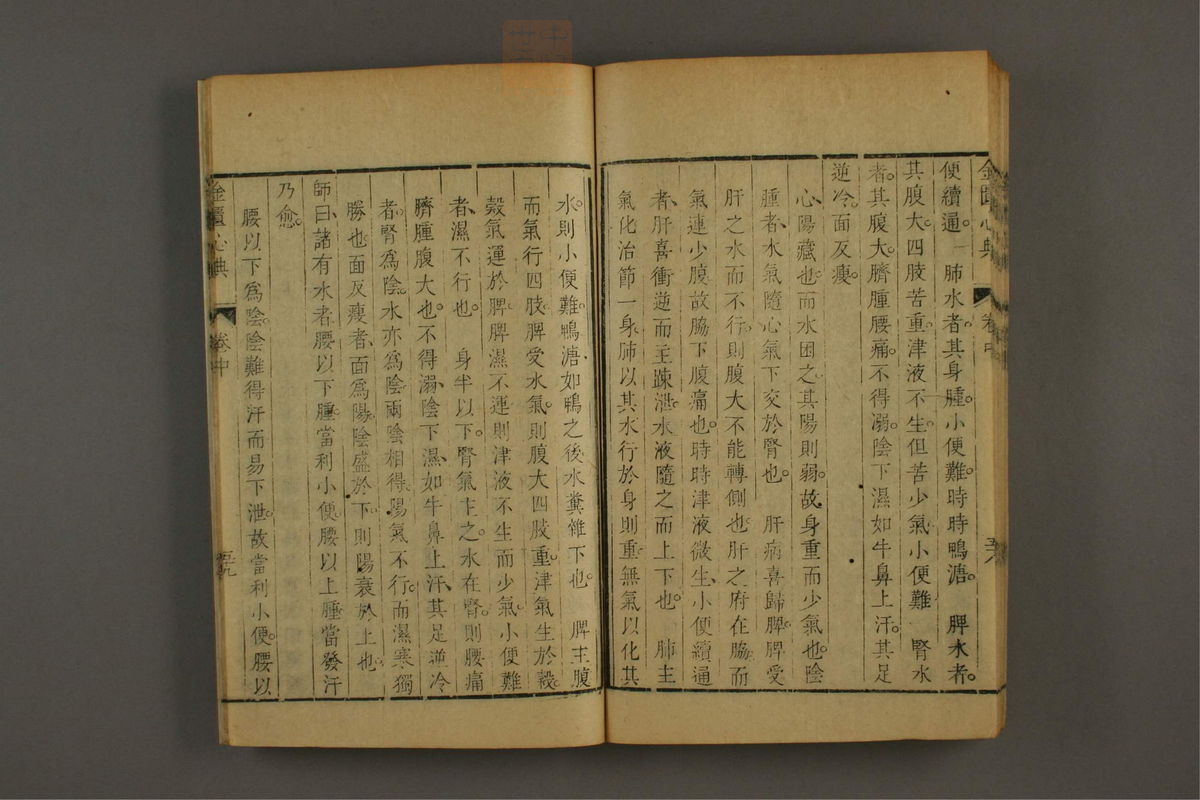 金匱心典 卷中 五八
便續通。 肺水者。其身腫。小便難。時時鴨溏。 脾水者。
其腹大。四肢苦重。津液不生。但苦少氣。小便難。 腎水
者。其腹大。臍腫腰痛。不得溺。陰下濕如牛鼻上汗。其足
逆冷。面反瘦。
心陽藏也。而水困之。其陽則弱。故身重而少氣也。陰
腫者、水氣隨心氣下交於腎也。 肝病喜歸脾。脾受
肝之水而不行。則腹大不能轉側也。肝之府在脇。而
氣連少腹。故脇下腹痛也。時時津液微生、小便續通
者、肝喜衝逆而主疎泄。水液隨之而上下也。 肺主
氣化治節一身。肺以其水行於身則重。無氣以化其
水。則小便難。鴨溏、如鴨之後、水糞雜下也。 脾主腹
而氣行四肢。脾受水氣。則腹大四肢重。津氣生於穀。
穀氣運於脾。脾濕不運。則津液不生而少氣。小便難
者、濕不行也。 身半以下。腎氣主之。水在腎。則腰痛
臍腫腹大也。不得溺、陰下濕如牛鼻上汗、其足逆冷
者。腎爲陰。水亦爲陰。兩陰相得。陽氣不行。而濕寒獨
勝也。面反瘦者、面爲陽。陰盛於下。則陽衰於上也。
師曰、諸有水者、腰以下腫。當利小便。腰以上腫當發汗
乃愈。
腰以下爲陰。陰難得汗而易下泄。故當利小便。腰以
金匱心典 卷中 五九